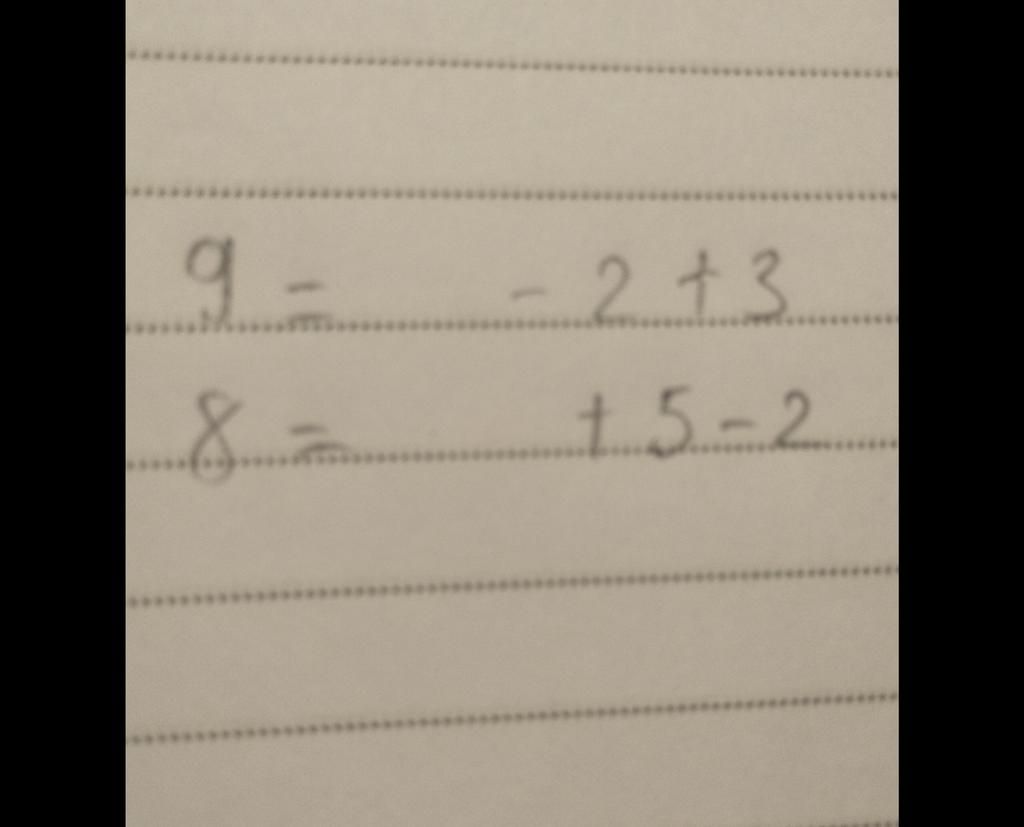 9 = - 2 + 3
8 = + 5 - 2